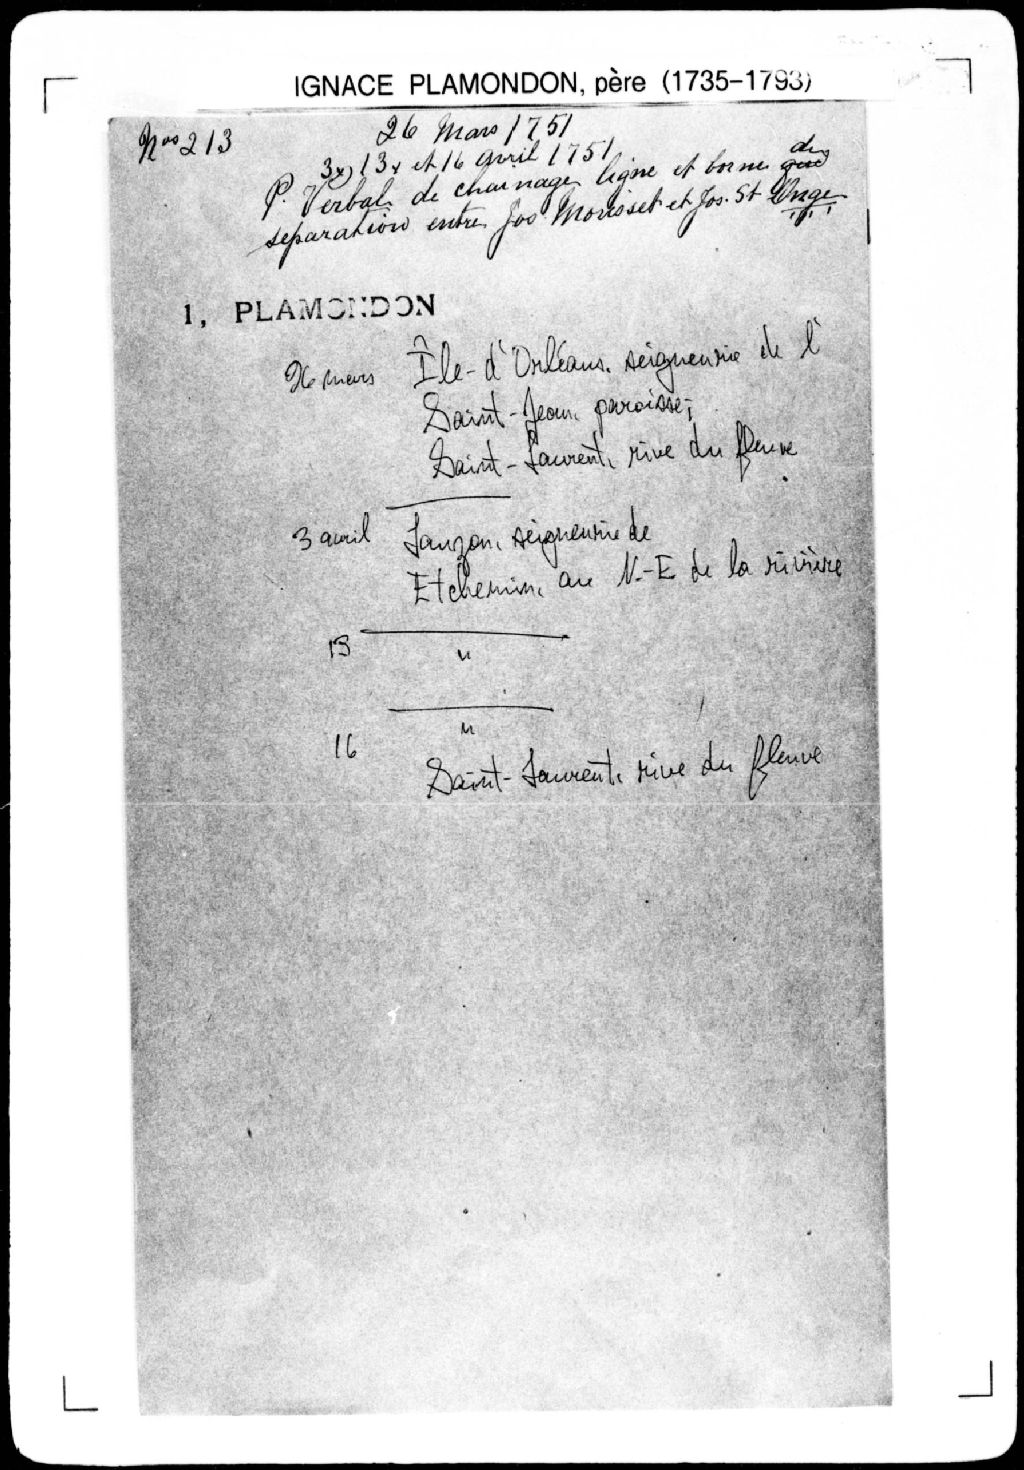 IGNACE PLAMONDON, père (1735-1793)
Nos 213
26 Mars 1751
3x, 13x et 16 avril 1751
P. Verbal de chainage, ligne et borne de
separation entre Jos Morisset et Jos. St Onge
1, PLAMONDON
26 mars Île-d'Orléans, seigneurie de l'
Saint-Jean, paroisse;
Saint-Laurent, rive du fleuve
3 avril Lauzon, seigneurie de
Etchemin, au N.-E de la rivière
13 "
16 "
Saint-Laurent, rive du fleuve